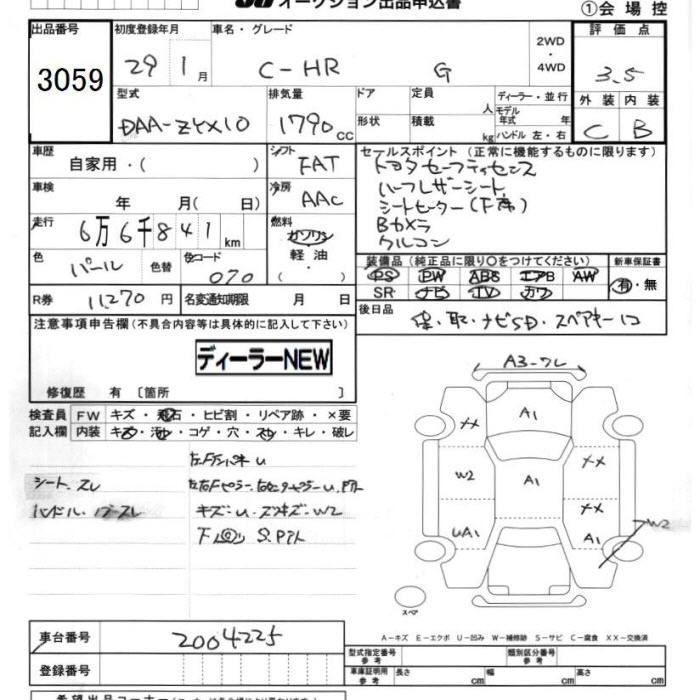 オークション出品申込書
①会場控
出品番号
初度登録年月
車名・グレード
2WD・4WD
評価点
3059
29 1月
C-HR G
3.5
型式
排気量
ドア
定員
ディーラー・並行
外装 内装
DAA-ZYX10
1790cc
形状
積載
人
kg
モデル年式 年
ハンドル 左・右
C B
車歴
自家用・( )
シフト FAT
セールスポイント (正常に機能するものに限ります)
トヨタセーフティセンス
ハーフレザーシート
シートヒーター(F席)
Bカメラ
クルコン
車検 年 月( 日)
冷房 AAC
走行 6万6千841km
燃料 ガソリン・軽油・
色 パール 色替
色コード 070
装備品 (純正品に限り〇をつけてください)
新車保証書
PS PW ABS エアB AW
SR ナビ TV カワ
有・無
R券 11270円
名変通知期限 月 日
後日品
保・取・ナビSD・スペアキー1コ
注意事項申告欄(不具合内容等は具体的に記入して下さい)
ディーラーNEW
修復歴 有 〔箇所 〕
検査員記入欄
FW キズ・飛石・ヒビ割・リペア跡・×要
内装 キズ・汚・コゲ・穴・スレ・キレ・破レ
シート.スレ
キズ・U.ズツキズ・W2
A3-ワレ
A1
XX
XX
W2
A1
XX
UA1
A1
W2
スペア
A-キズ E-エクボ U-凹み W-補修跡 S-サビ C-腐食 XX-交換済
車台番号 2004225
型式指定番号 参考
類別区分番号 参考
登録番号
車庫証明用 参考
長さ cm
幅 cm
高さ cm